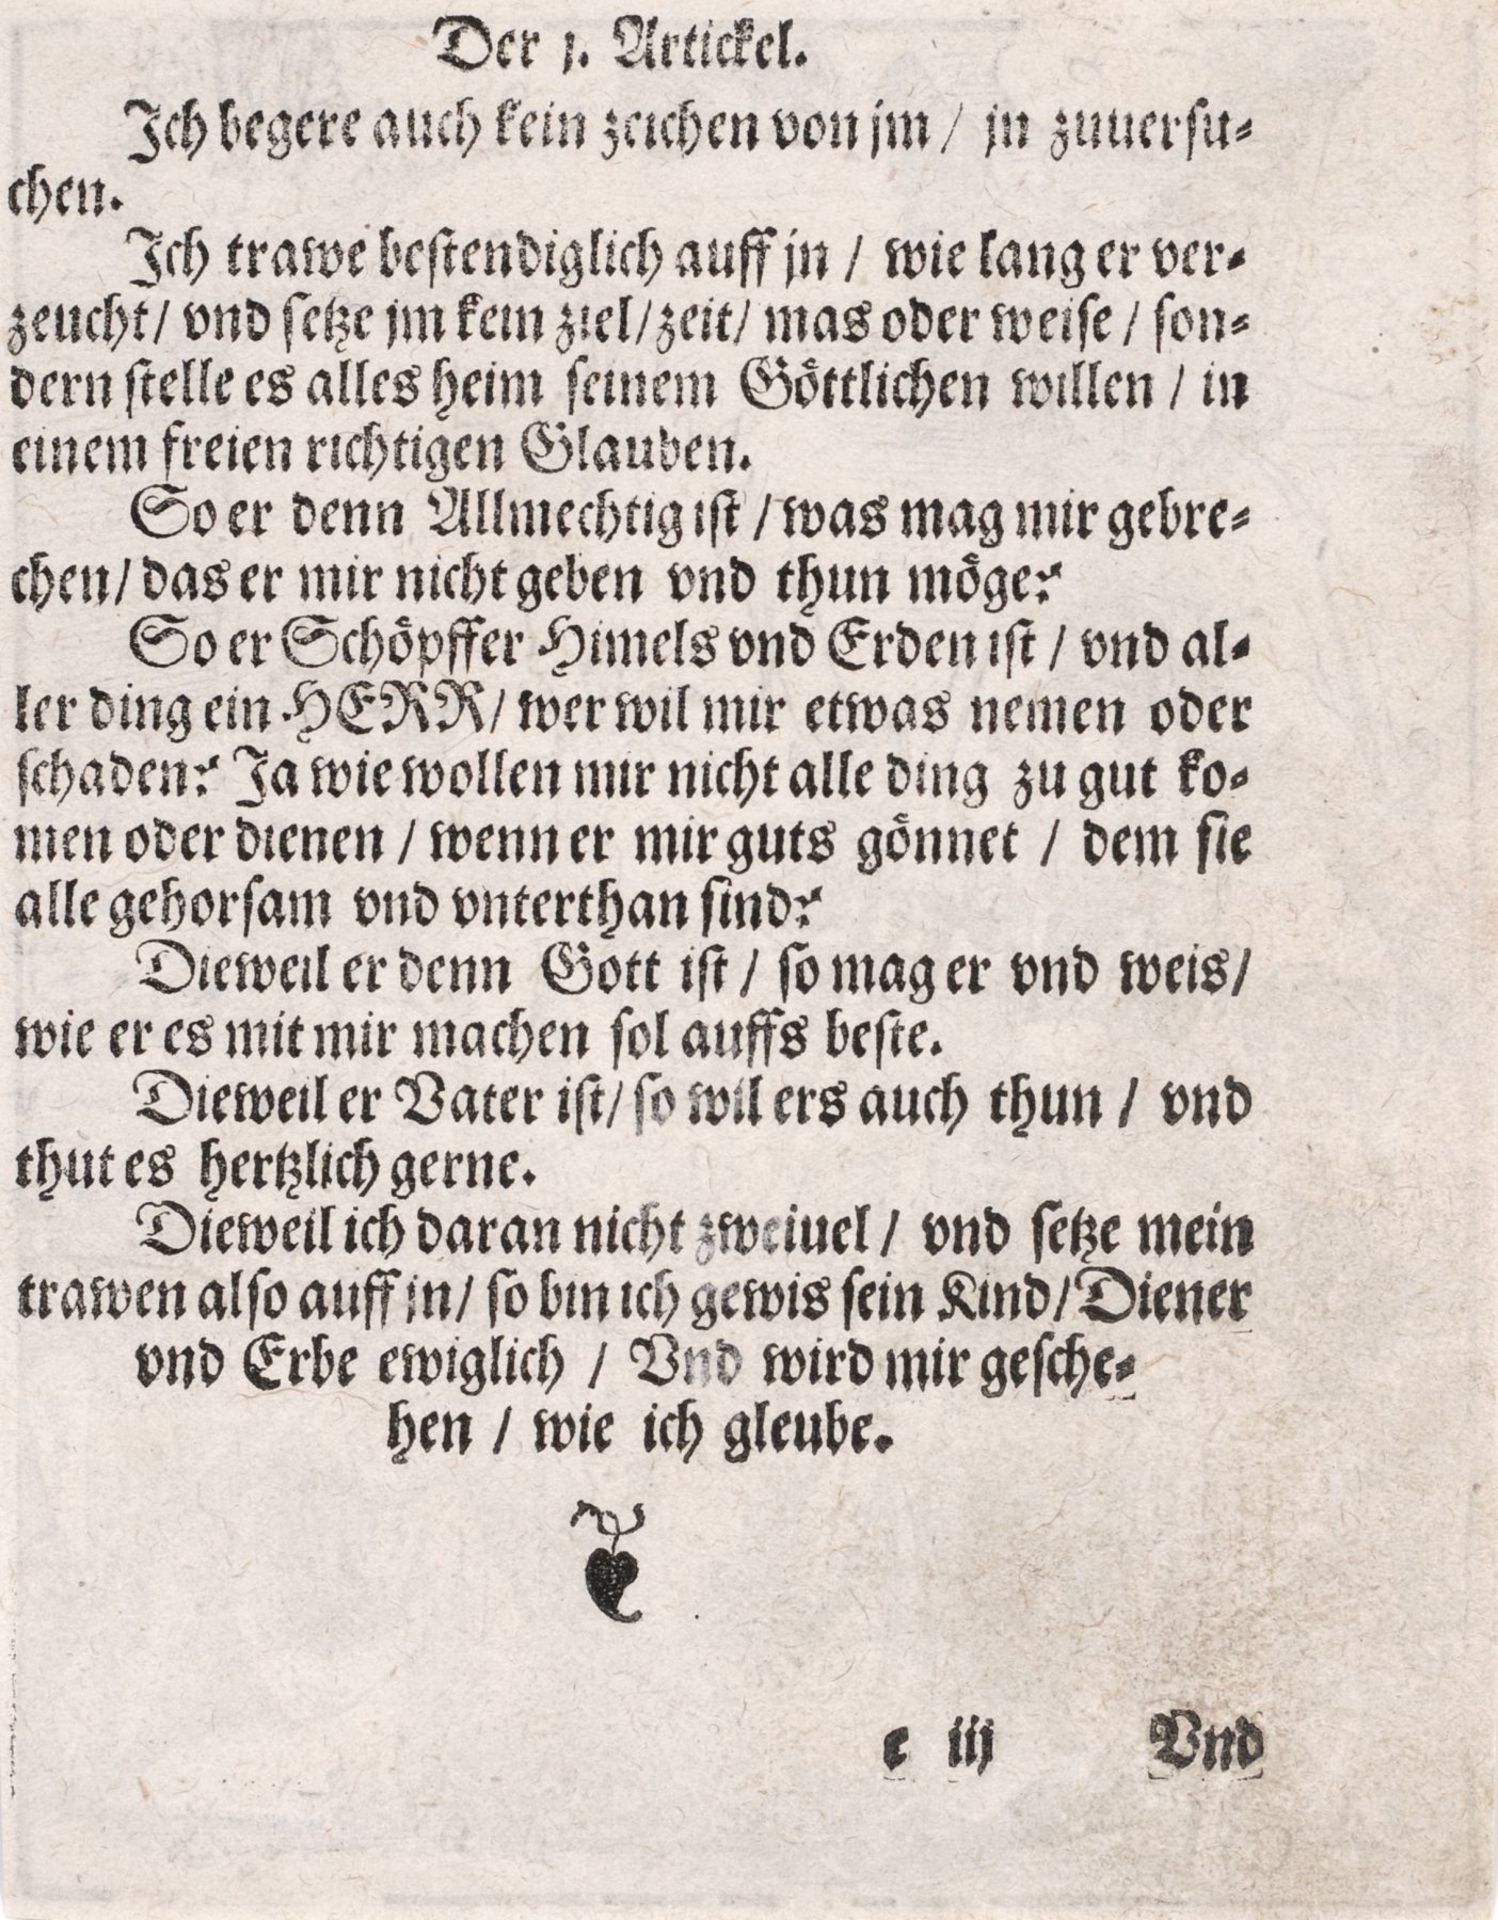 Der 1. Artickel.
Ich begere auch kein zeichen von jm / jn zuuersu-
chen.
Ich trawe bestendiglich auff jn / wie lang er ver-
zeucht / vnd setze jm kein ziel / zeit / mas oder weise / son-
dern stelle es alles heim seinem Göttlichen willen / in
einem freien richtigen Glauben.
So er denn Allmechtig ist / was mag mir gebre-
chen / das er mir nicht geben vnd thun möge?
So er Schöpffer Himels vnd Erden ist / vnd al-
ler ding ein HERR / wer wil mir etwas nemen oder
schaden? Ja wie wollen mir nicht alle ding zu gut ko-
men oder dienen / wenn er mir guts gönnet / dem sie
alle gehorsam vnd vnterthan sind?
Dieweil er denn Gott ist / so mag er vnd weis /
wie er es mit mir machen sol auffs beste.
Dieweil er Vater ist / so wil ers auch thun / vnd
thut es hertzlich gerne.
Dieweil ich daran nicht zweiuel / vnd setze mein
trawen also auff jn / so bin ich gewis sein Kind / Diener
vnd Erbe ewiglich / Vnd wird mir gesche-
hen / wie ich gleube.
c iij Vnd